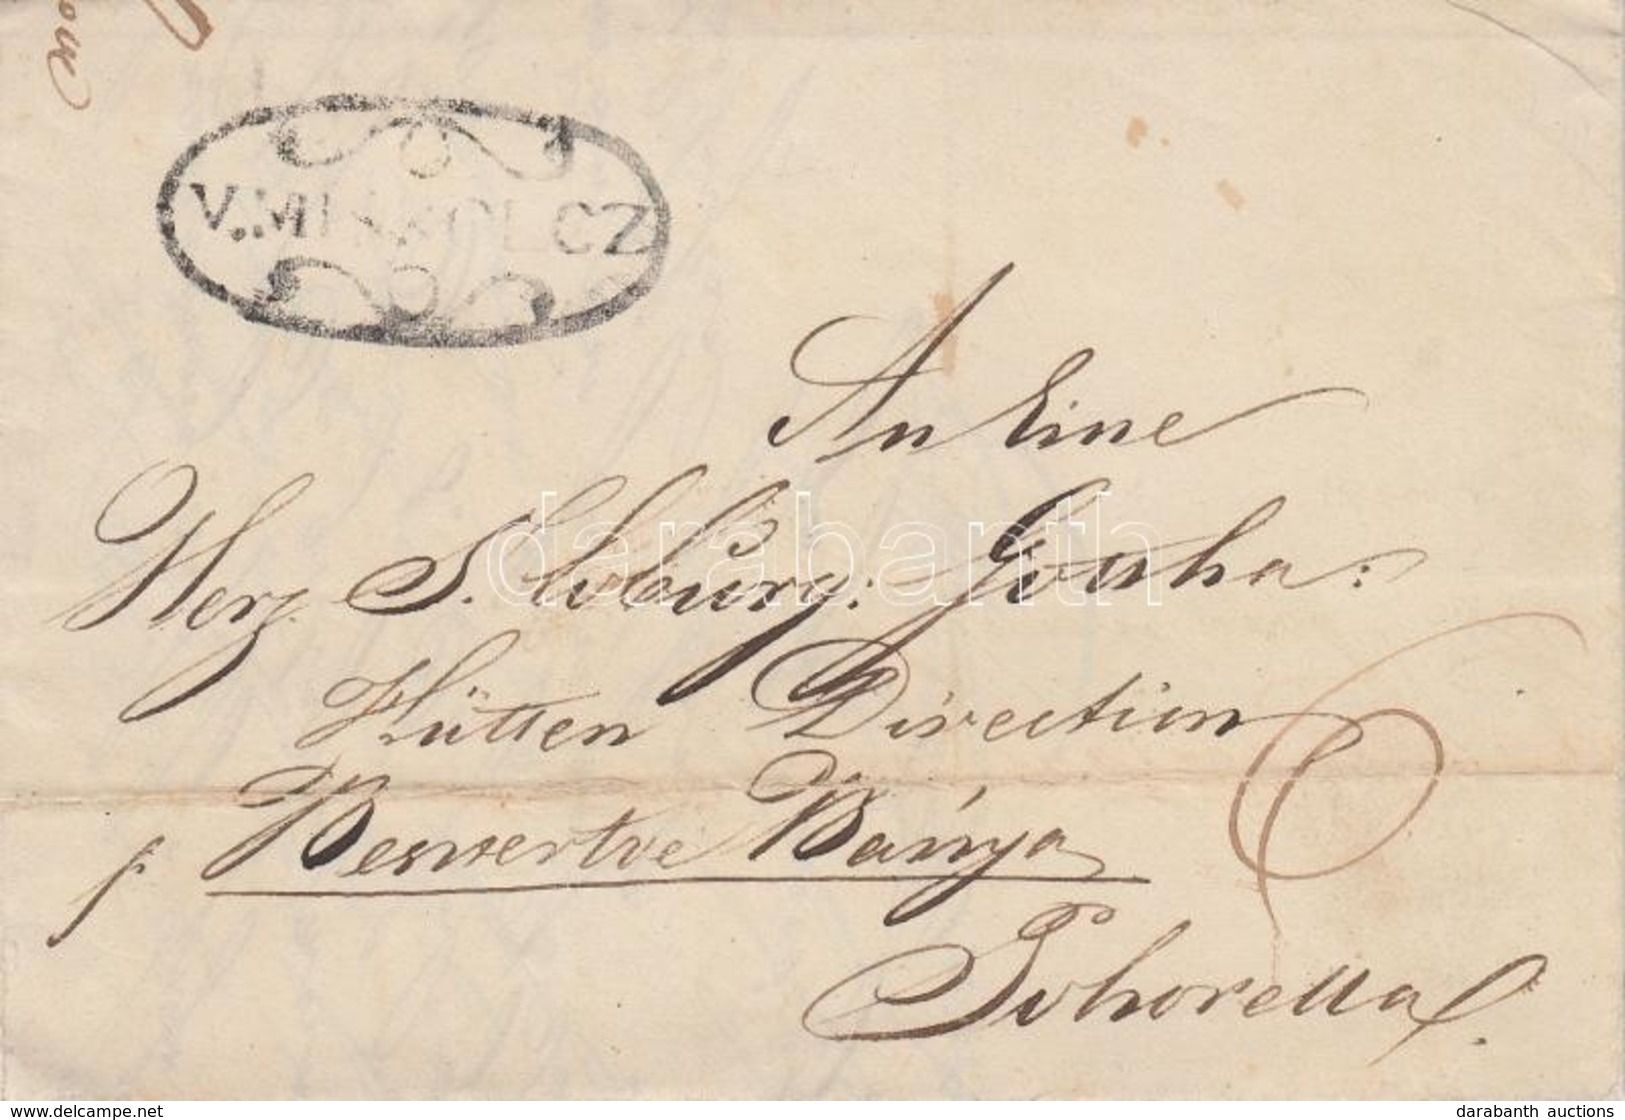 V. MISKOLCZ
An Eine
Herz. S. Coburg: Gottha:
Hütten Direction
6
p. Beszertze Bánya
Pohorella
darabanth
delcampe.net
darabanth auctions